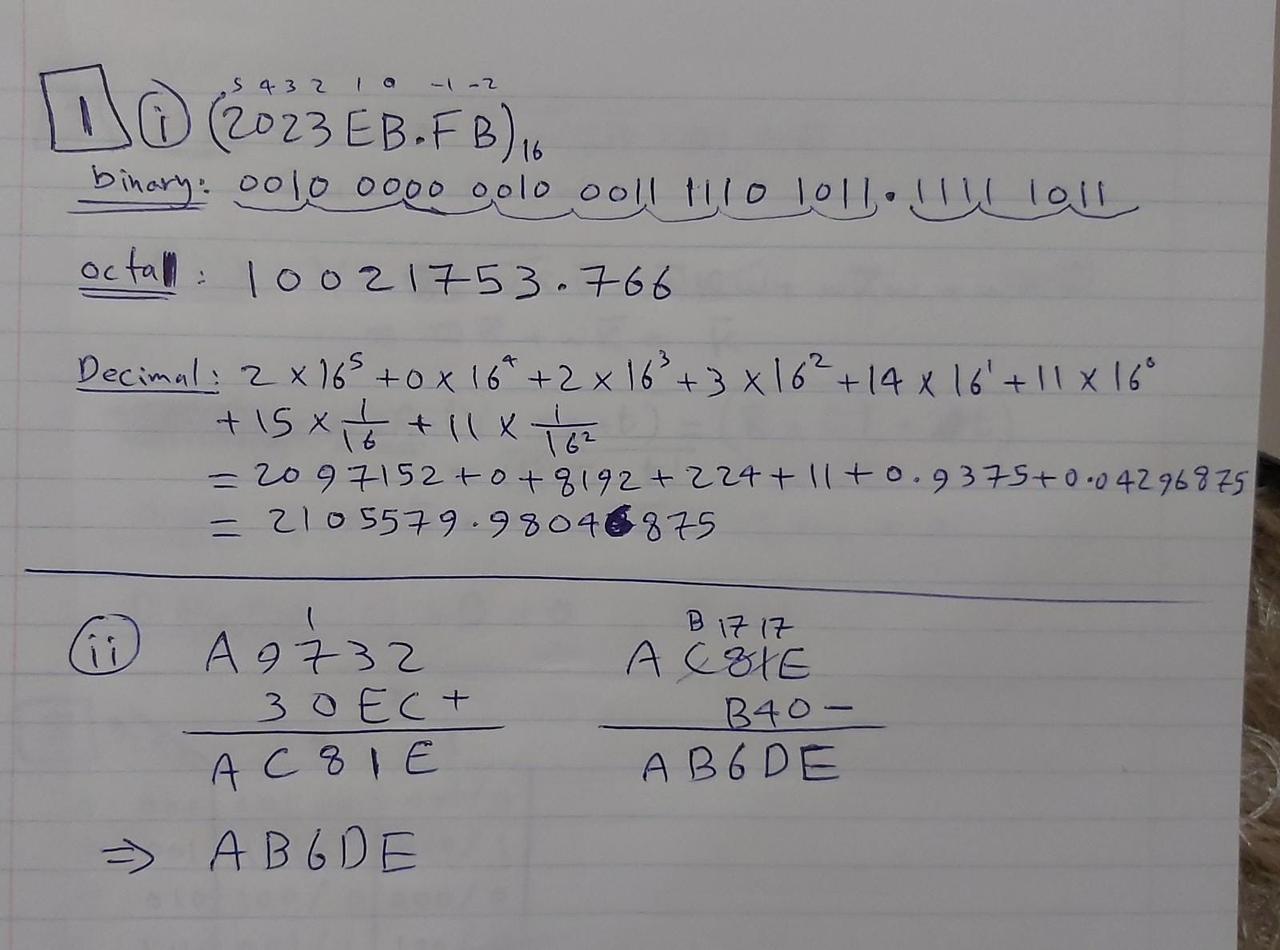 5 4 3 2 1 0 -1 -2
1 i (2023EB.FB)₁₆
binary: 0010 0000 0010 0011 1110 1011.1111 1011
octal: 10021753.766
Decimal: 2 × 16⁵ + 0 × 16⁴ + 2 × 16³ + 3 × 16² + 14 × 16¹ + 11 × 16⁰
+ 15 × 1/16 + 11 × 1/16²
= 2097152 + 0 + 8192 + 224 + 11 + 0.9375 + 0.04296875
= 2105579.98046875
ii
1
A9732
30EC +
AC81E
B 17 17
AC81E
B40 -
AB6DE
⇒ AB6DE